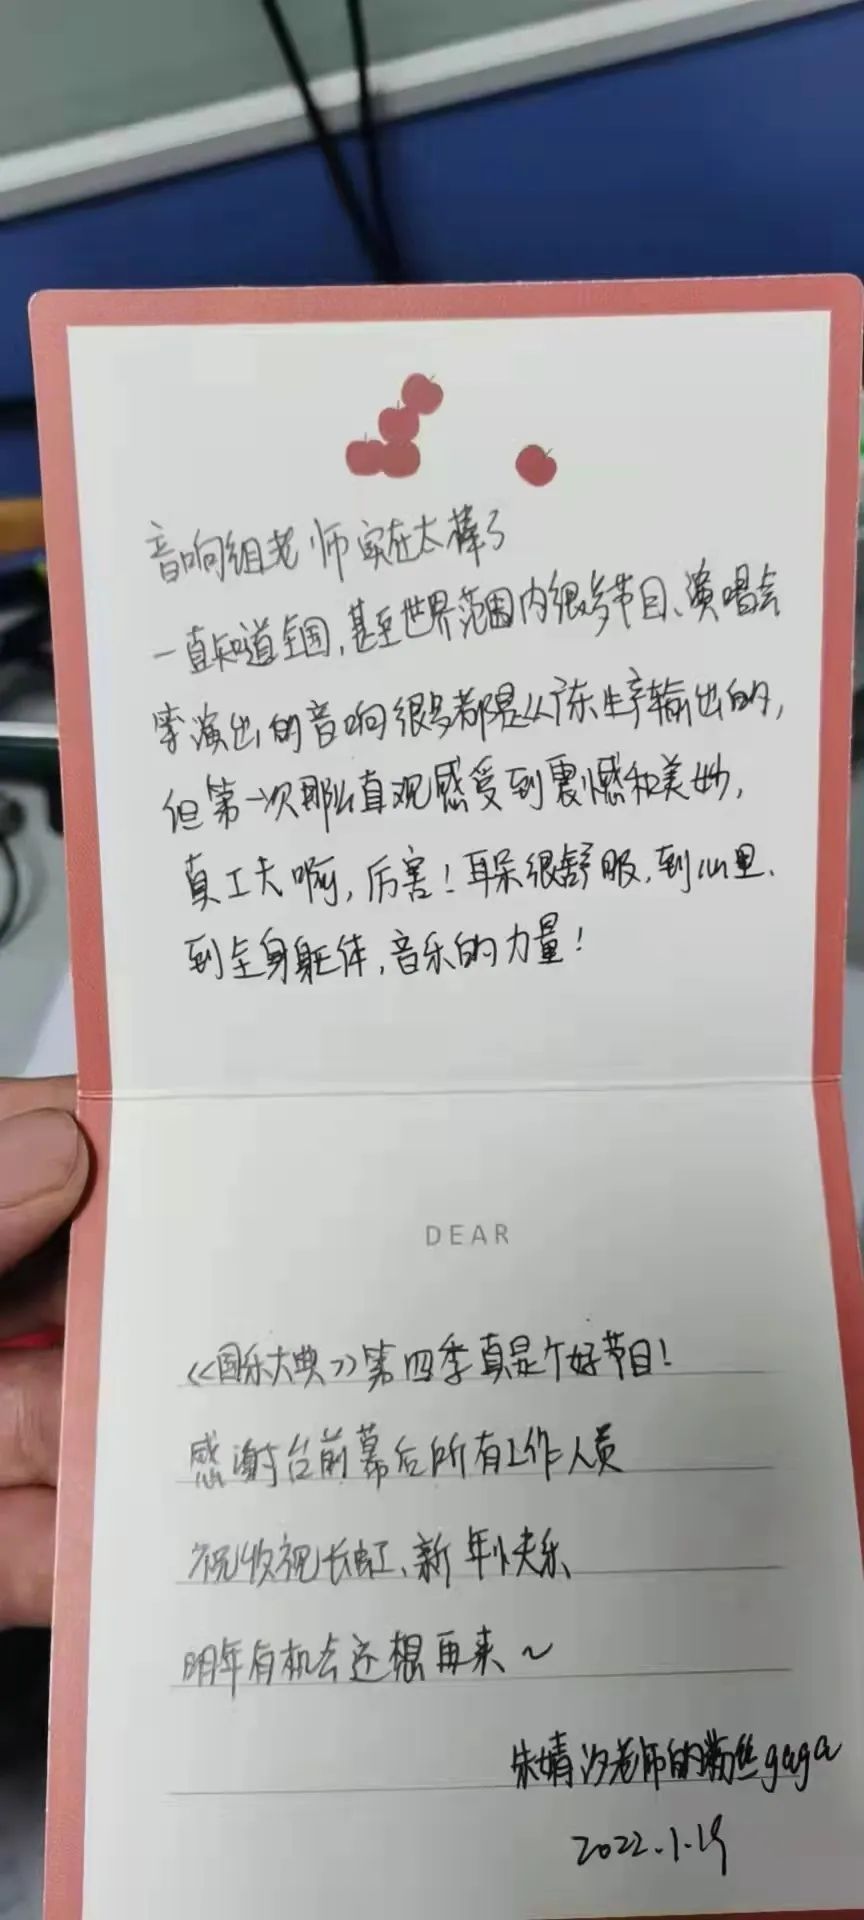 音响组老师实在太棒了
一直知道全国,甚至世界范围内很多节目、演唱会
等演出的音响很多都是从广东生产输出的,
但第一次那么直观感受到震撼和美妙,
真工夫啊,厉害!耳朵很舒服,到心里、
到全身躯体,音乐的力量!
DEAR
《国乐大典》第四季真是个好节目!
感谢台前幕后所有工作人员
祝收视长虹、新年快乐
明年有机会还想再来~
朱婧汐老师的粉丝gaga
2022.1.19